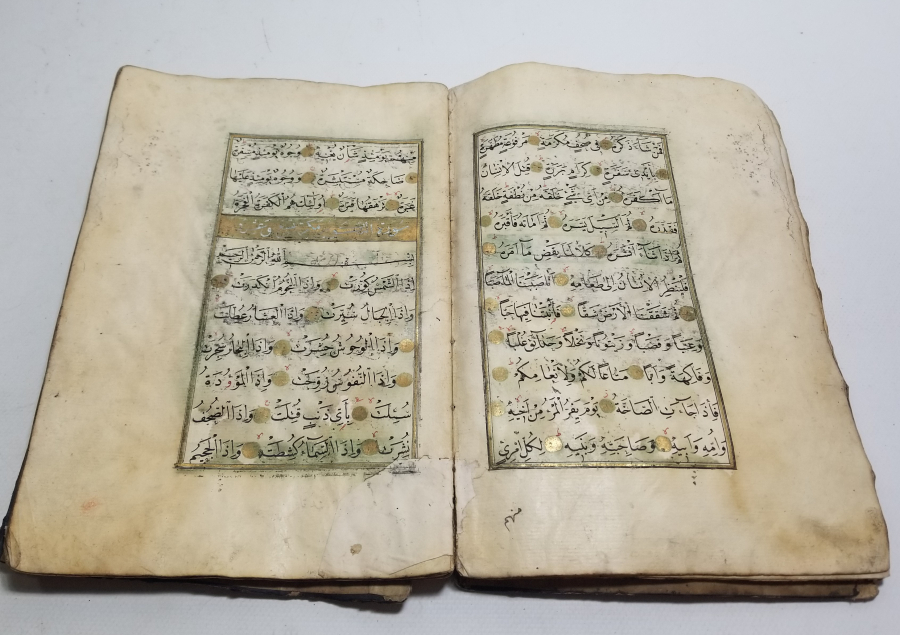 فَمَنْ شَاءَ ذَكَرَهُ فِي صُحُفٍ مُكَرَّمَةٍ مَرْفُوعَةٍ مُطَهَّرَةٍ
بِأَيْدِي سَفَرَةٍ كِرَامٍ بَرَرَةٍ قُتِلَ الْاِنْسَانُ
مَا اَكْفَرَهُ مِنْ اَيِّ شَيْءٍ خَلَقَهُ مِنْ نُطْفَةٍ خَلَقَهُ
فَقَدَّرَهُ ثُمَّ السَّبِيلَ يَسَّرَهُ ثُمَّ اَمَاتَهُ فَاَقْبَرَهُ
ثُمَّ اِذَا شَاءَ اَنْشَرَهُ كَلَّا لَمَّا يَقْضِ مَا اَمَرَهُ
فَلْيَنْظُرِ الْاِنْسَانُ اِلٰى طَعَامِهِ اَنَّا صَبَبْنَا الْمَاءَ صَبًّا
ثُمَّ شَقَقْنَا الْاَرْضَ شَقًّا فَاَنْبَتْنَا فِيهَا حَبًّا
وَعِنَبًا وَقَضْبًا وَزَيْتُونًا وَنَخْلًا وَحَدَائِقَ غُلْبًا
وَفَاكِهَةً وَاَبًّا مَتَاعًا لَكُمْ وَلِاَنْعَامِكُمْ
فَاِذَا جَاءَتِ الصَّاخَّةُ يَوْمَ يَفِرُّ الْمَرْءُ مِنْ اَخِيهِ
وَاُمِّهِ وَاَبِيهِ وَصَاحِبَتِهِ وَبَنِيهِ لِكُلِّ امْرِئٍ
منهم
مِنْهُمْ يَوْمَئِذٍ شَأْنٌ يُغْنِيهِ وُجُوهٌ يَوْمَئِذٍ مُسْفِرَةٌ
ضَاحِكَةٌ مُسْتَبْشِرَةٌ وَوُجُوهٌ يَوْمَئِذٍ عَلَيْهَا
غَبَرَةٌ تَرْهَقُهَا قَتَرَةٌ اُولٰئِكَ هُمُ الْكَفَرَةُ الْفَجَرَةُ
بِسْمِ اللّٰهِ الرَّحْمٰنِ الرَّحِيمِ
اِذَا الشَّمْسُ كُوِّرَتْ وَاِذَا النُّجُومُ انْكَدَرَتْ
وَاِذَا الْجِبَالُ سُيِّرَتْ وَاِذَا الْعِشَارُ عُطِّلَتْ
وَاِذَا الْوُحُوشُ حُشِرَتْ وَاِذَا الْبِحَارُ سُجِّرَتْ
وَاِذَا النُّفُوسُ زُوِّجَتْ وَاِذَا الْمَوْؤُدَةُ
سُئِلَتْ بِأَيِّ ذَنْبٍ قُتِلَتْ وَاِذَا الصُّحُفُ
نُشِرَتْ وَاِذَا السَّمَاءُ كُشِطَتْ وَاِذَا الْجَحِيمُ